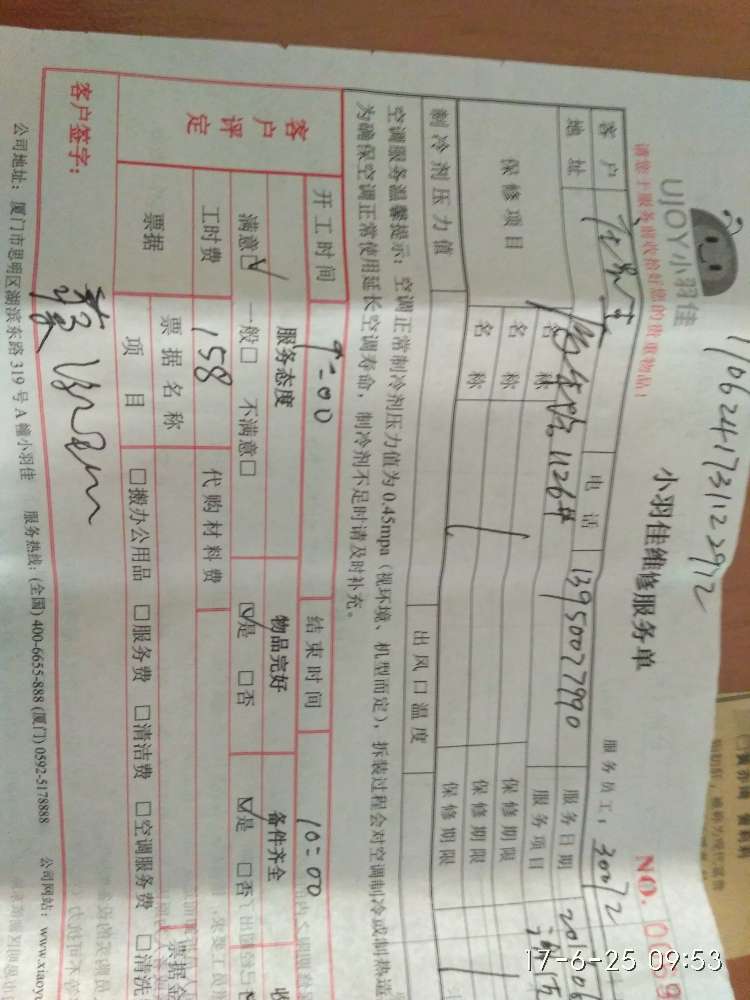 1706241731122912
UJOY小羽佳
小羽佳维修服务单
请您于服务前收拾好您的贵重物品!
服务员工: 30072
NO. 0
客户
电话 13950027990
服务日期
地址
1126#
服务项目
保修项目
名称
保修期限
名称
保修期限
名称
保修期限
制冷剂压力值
出风口温度
空调服务温馨提示: 空调正常制冷剂压力值为 0.45mpa (视环境、机型而定), 拆装过程会对空调制冷或制热造
为确保空调正常使用延长空调寿命, 制冷剂不足时请及时补充。
开工时间 9:00 结束时间 10:00
客户评定
服务态度 物品完好 备件齐全
满意☑ 一般□ 不满意□ ☑是 □否 ☑是 □否
工时费 158 代购材料费
票据 票据名称
项目 □搬办公用品 □服务费 □清洁费 □空调服务费 □清洗
客户签字:
公司地址: 厦门市思明区湖滨东路 319 号 A 幢小羽佳 服务热线: (全国) 400-6655-888 (厦门) 0592-5178888 公司网站: www.xiaoyu
17-6-25 09:53